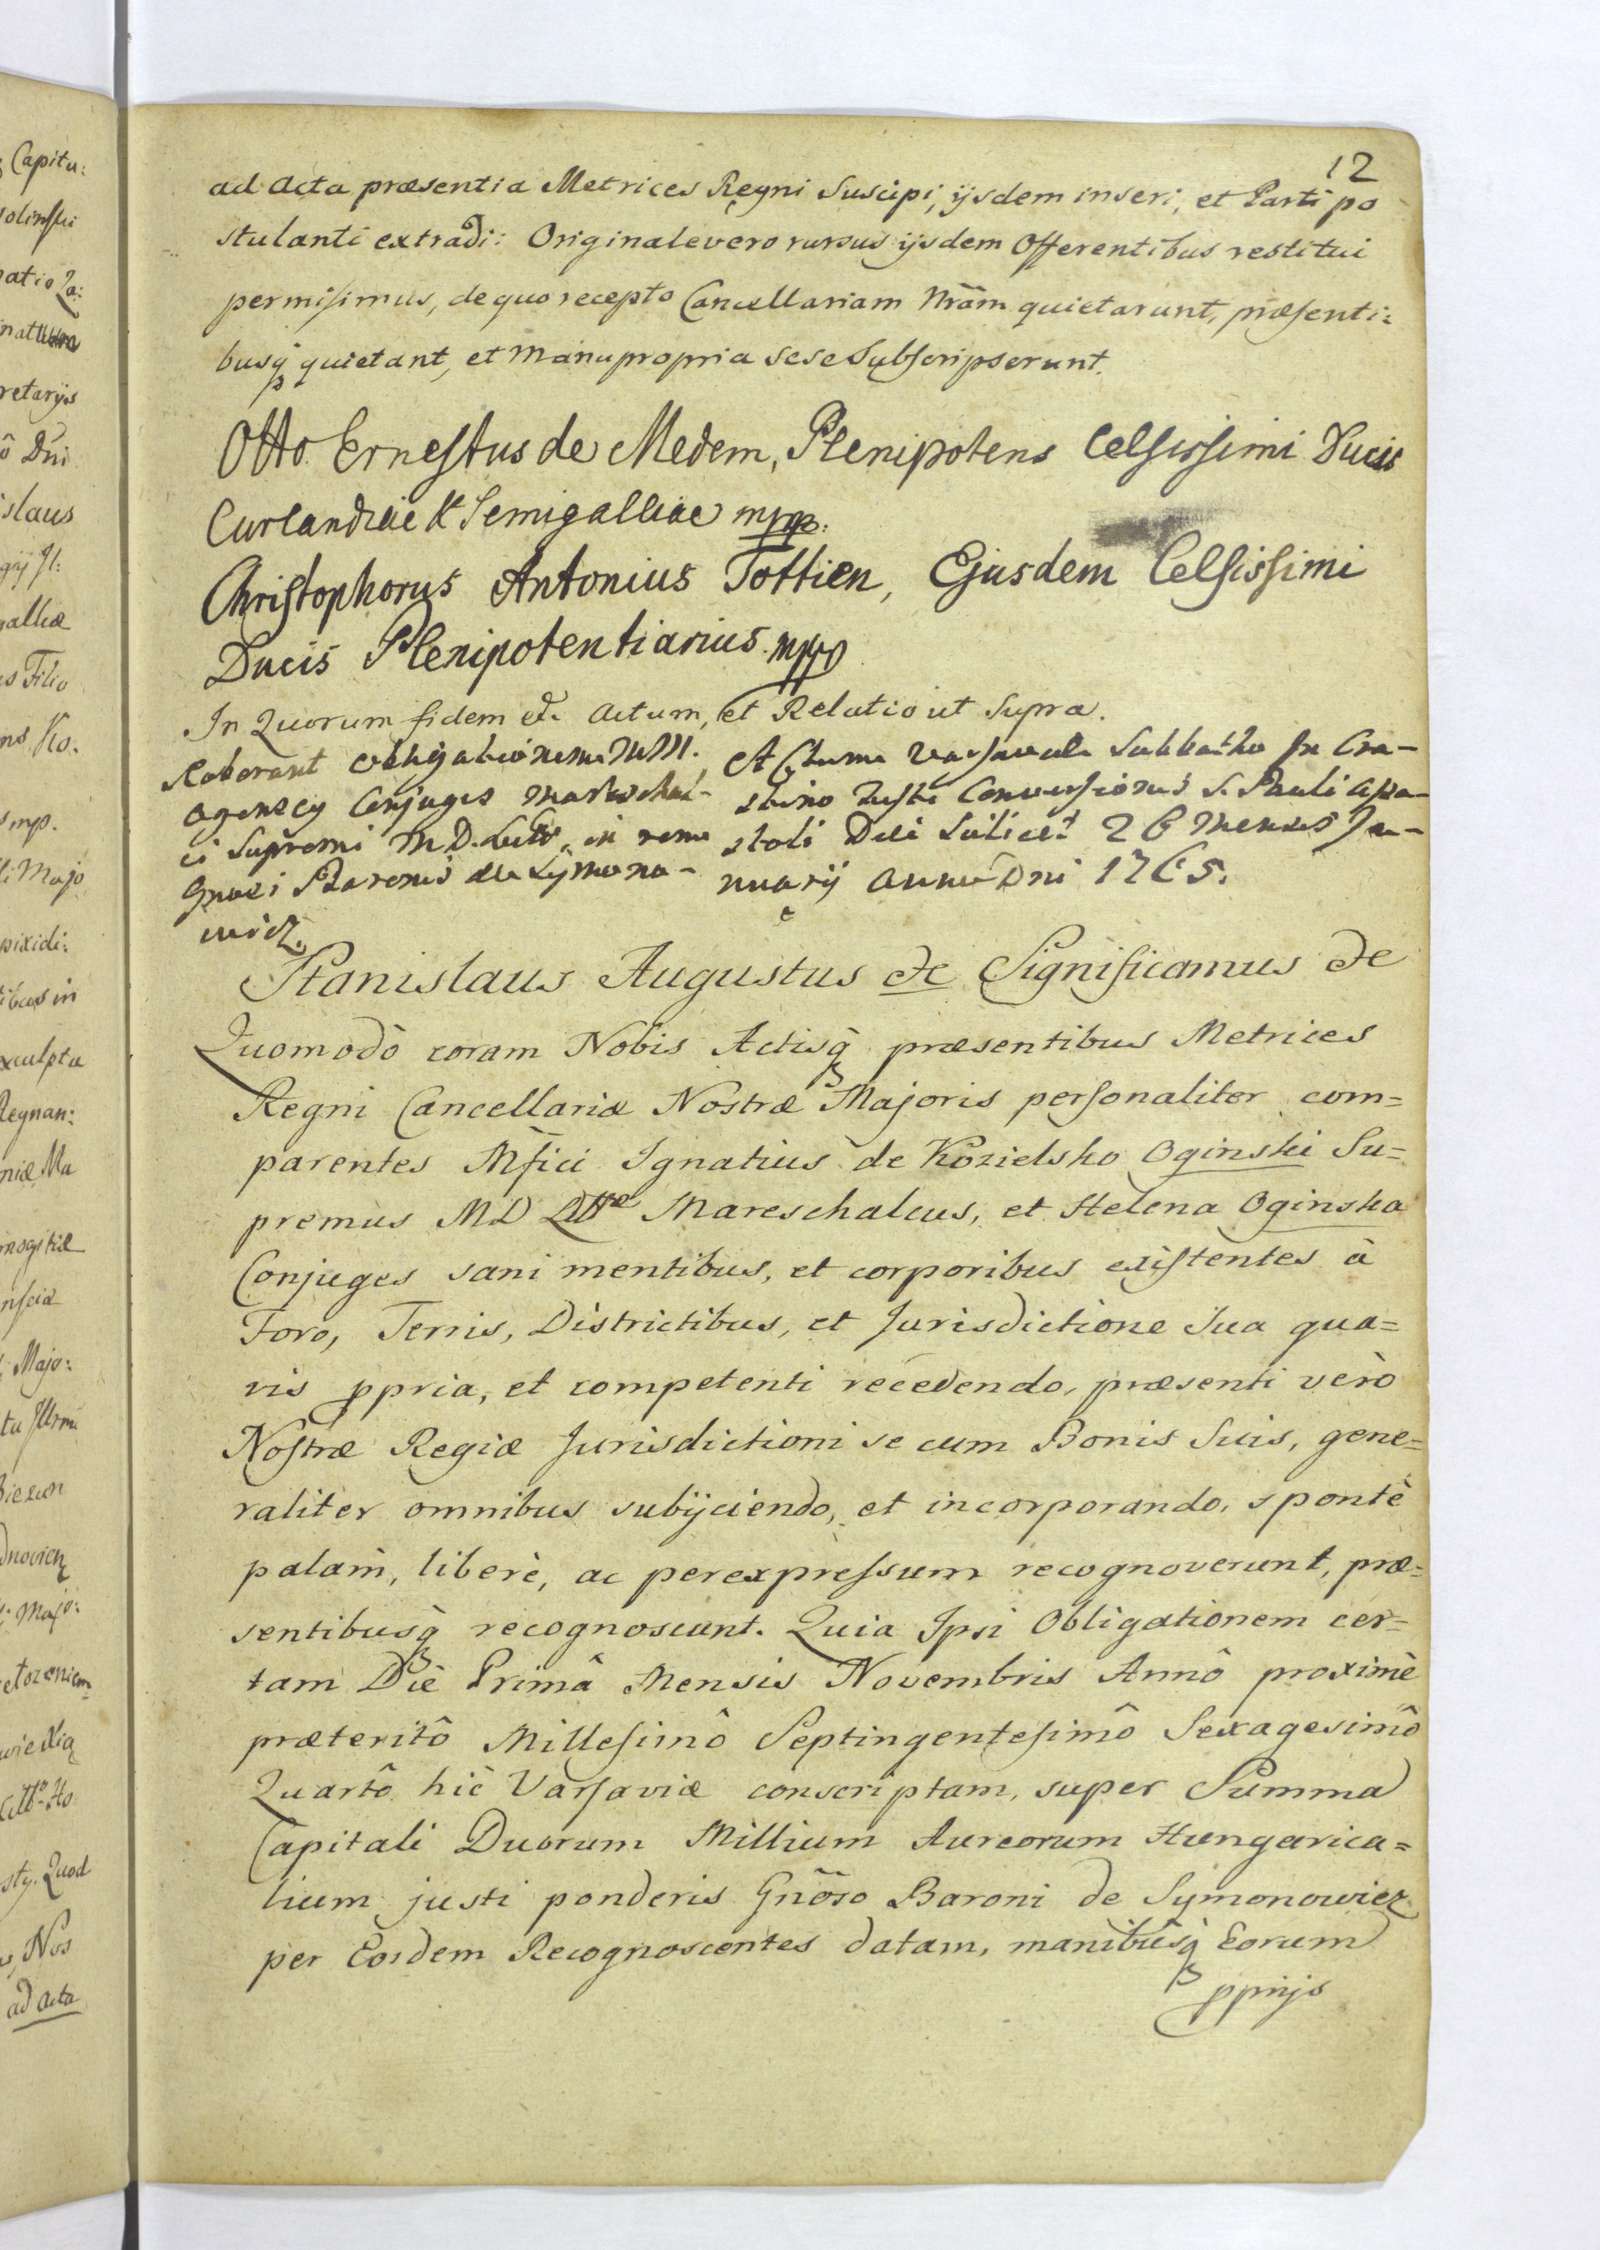 12
ad Acta præsentia Metrices Regni Suscipi, ijsdem inseri, et Parti po
stulanti extradi: Originale vero rursus ijsdem Offerentibus restitui
permisimus, de quo recepto Cancellariam Nrãm quietarunt, præsenti:
busq quietant, et Manu propria sese Subscripserunt.
Otto Ernestus de Medem, Plenipotens Celsissimi Ducis
Curlandiae & Semigalliae mpp:
Christophorus Antonius Tottien, Ejusdem Celsissimi
Ducis Plenipotentiarius mpp
In Quorum fidem etc Actum, et Relatio ut Supra.
Roborant obligationem MM.
Oginscy Conjuges Mareschal-
ci Supremi M.D. Litt. in rem
Gnosi Baronis de Symono-
wicz.
Actum Varsaviæ Sabbatho In Cra-
stino Festi Conversionis S. Pauli Apo-
stoli Die Scilicet 26 Mensis Ja-
nuarij Anno Dni 1765.
Stanislaus Augustus etc Significamus etc
Quomodò coram Nobis Actisq præsentibus Metrices
Regni Cancellariæ Nostræ Majoris personaliter com=
parentes Mfici Ignatius de Kozielsko Oginski Su=
premus MD Littæ Mareschalcus, et Helena Oginska
Conjuges sani mentibus, et corporibus existentes à
Foro, Terris, Districtibus, et Jurisdictione Sua qua=
vis ppria, et competenti recedendo, præsenti vèrò
Nostræ Regiæ Jurisdictioni se cum Bonis Suis, gene=
raliter omnibus subijciendo, et incorporando, spontè
palàm, liberè, ac per expressum recognoverunt, præ=
sentibusq̀ recognoscunt. Quia Ipsi Obligationem cer=
tam Diè Primâ Mensis Novembris Annô proximè
præteritô Millesimô Septingentesimô Sexagesimô
Quartô hic Varsaviæ conscriptam, super Summa
Capitali Duorum Millium Aureorum Hungarica=
lium justi ponderis Gnõso Baroni de Symonowicz
per Eosdem Recognoscentes datam, manibusq̀ Eorum
pprijs
: Capitu:
retarijs
ô Dni
islaus
galliæ
us Filio
ns Ko.
mp.
li Majo
pixidi:
tibus in
xculpta
Regnan:
niæ Ma
mogitiæ
nsciæ
: Majo:
sty. Quod
s, Nos
ad Acta